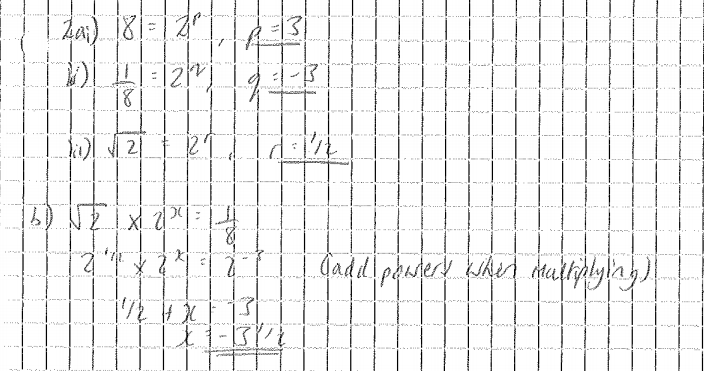 2ai) 8 = 2^p, p = 3
ii) 1/8 = 2^q, q = -3
iii) √2 = 2^r, r = 1/2
b) √2 × 2^x = 1/8
2^1/2 × 2^x = 2^-3 (add powers when multiplying)
1/2 + x = -3
x = -3 1/2